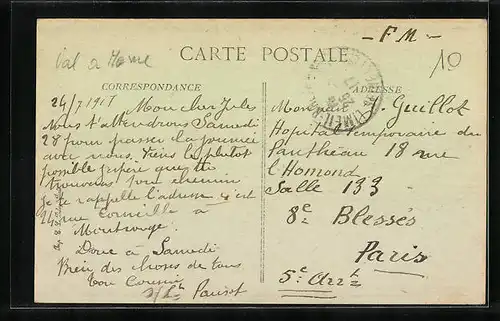 - F M -
Val de Marne
10
CARTE POSTALE
CORRESPONDANCE
ADRESSE
24/7 1917
Mon cher Jules
Nous t'attendrons Samedi
28 pour passer la journée
avec nous. Viens le plutôt
possible j'espère que tu
trouveras ton chemin
je te rappelle l'adresse c'est
24 rue Corneille à
Montrouge.
Donc à Samedi
Bien des choses de tous
ton Cousin
Parisot
Monsieur J. Guillot
Hopital Temporaire du
Panthéon 18 rue
l'Homond
Salle 133
8e Blessés
Paris
5e Arrt